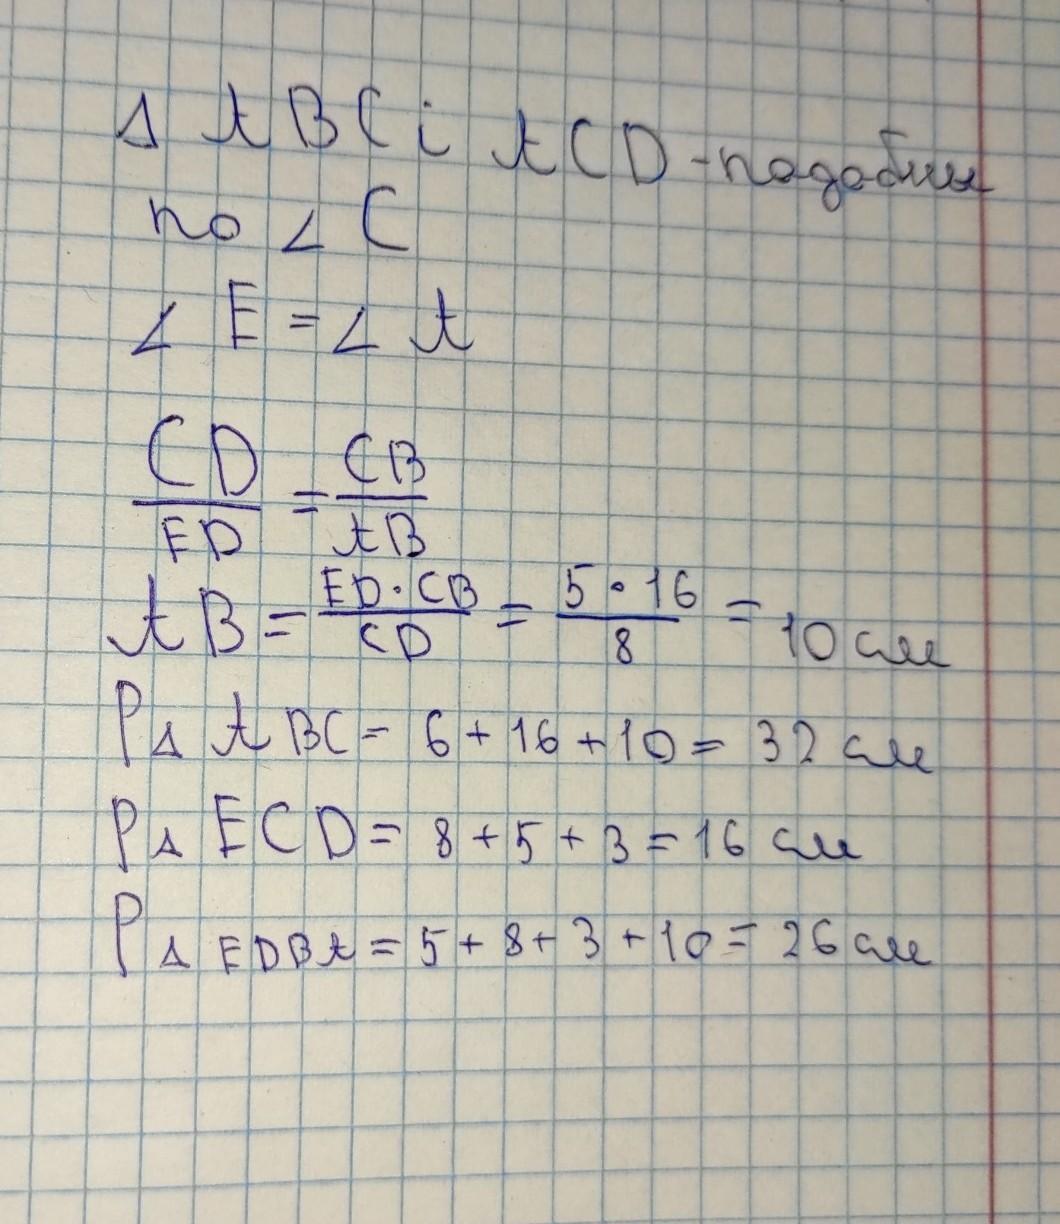 Δ ABC i ACD - подобны
по ∠ C
∠ E = ∠ A
CD/ED = CB/AB
AB = ED · CB/CD = 5 · 16/8 = 10 см
P Δ ABC = 6 + 16 + 10 = 32 см
P Δ ECD = 8 + 5 + 3 = 16 см
P Δ EDBA = 5 + 8 + 3 + 10 = 26 см